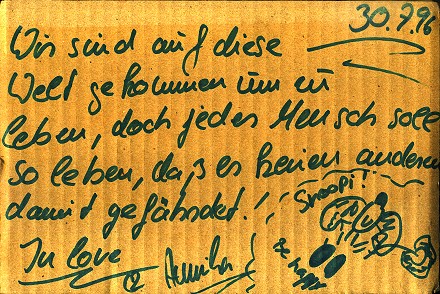 30.7.96
Wir sind auf diese
Welt gekommen um zu
leben, doch jeder Mensch soll
so leben, daß es keinen anderen
damit gefährdet!
Snoopi!
In love
be happy